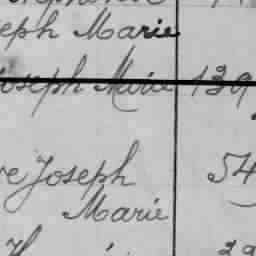 eph Marie
oseph Marie 139
ve Joseph 54
Marie